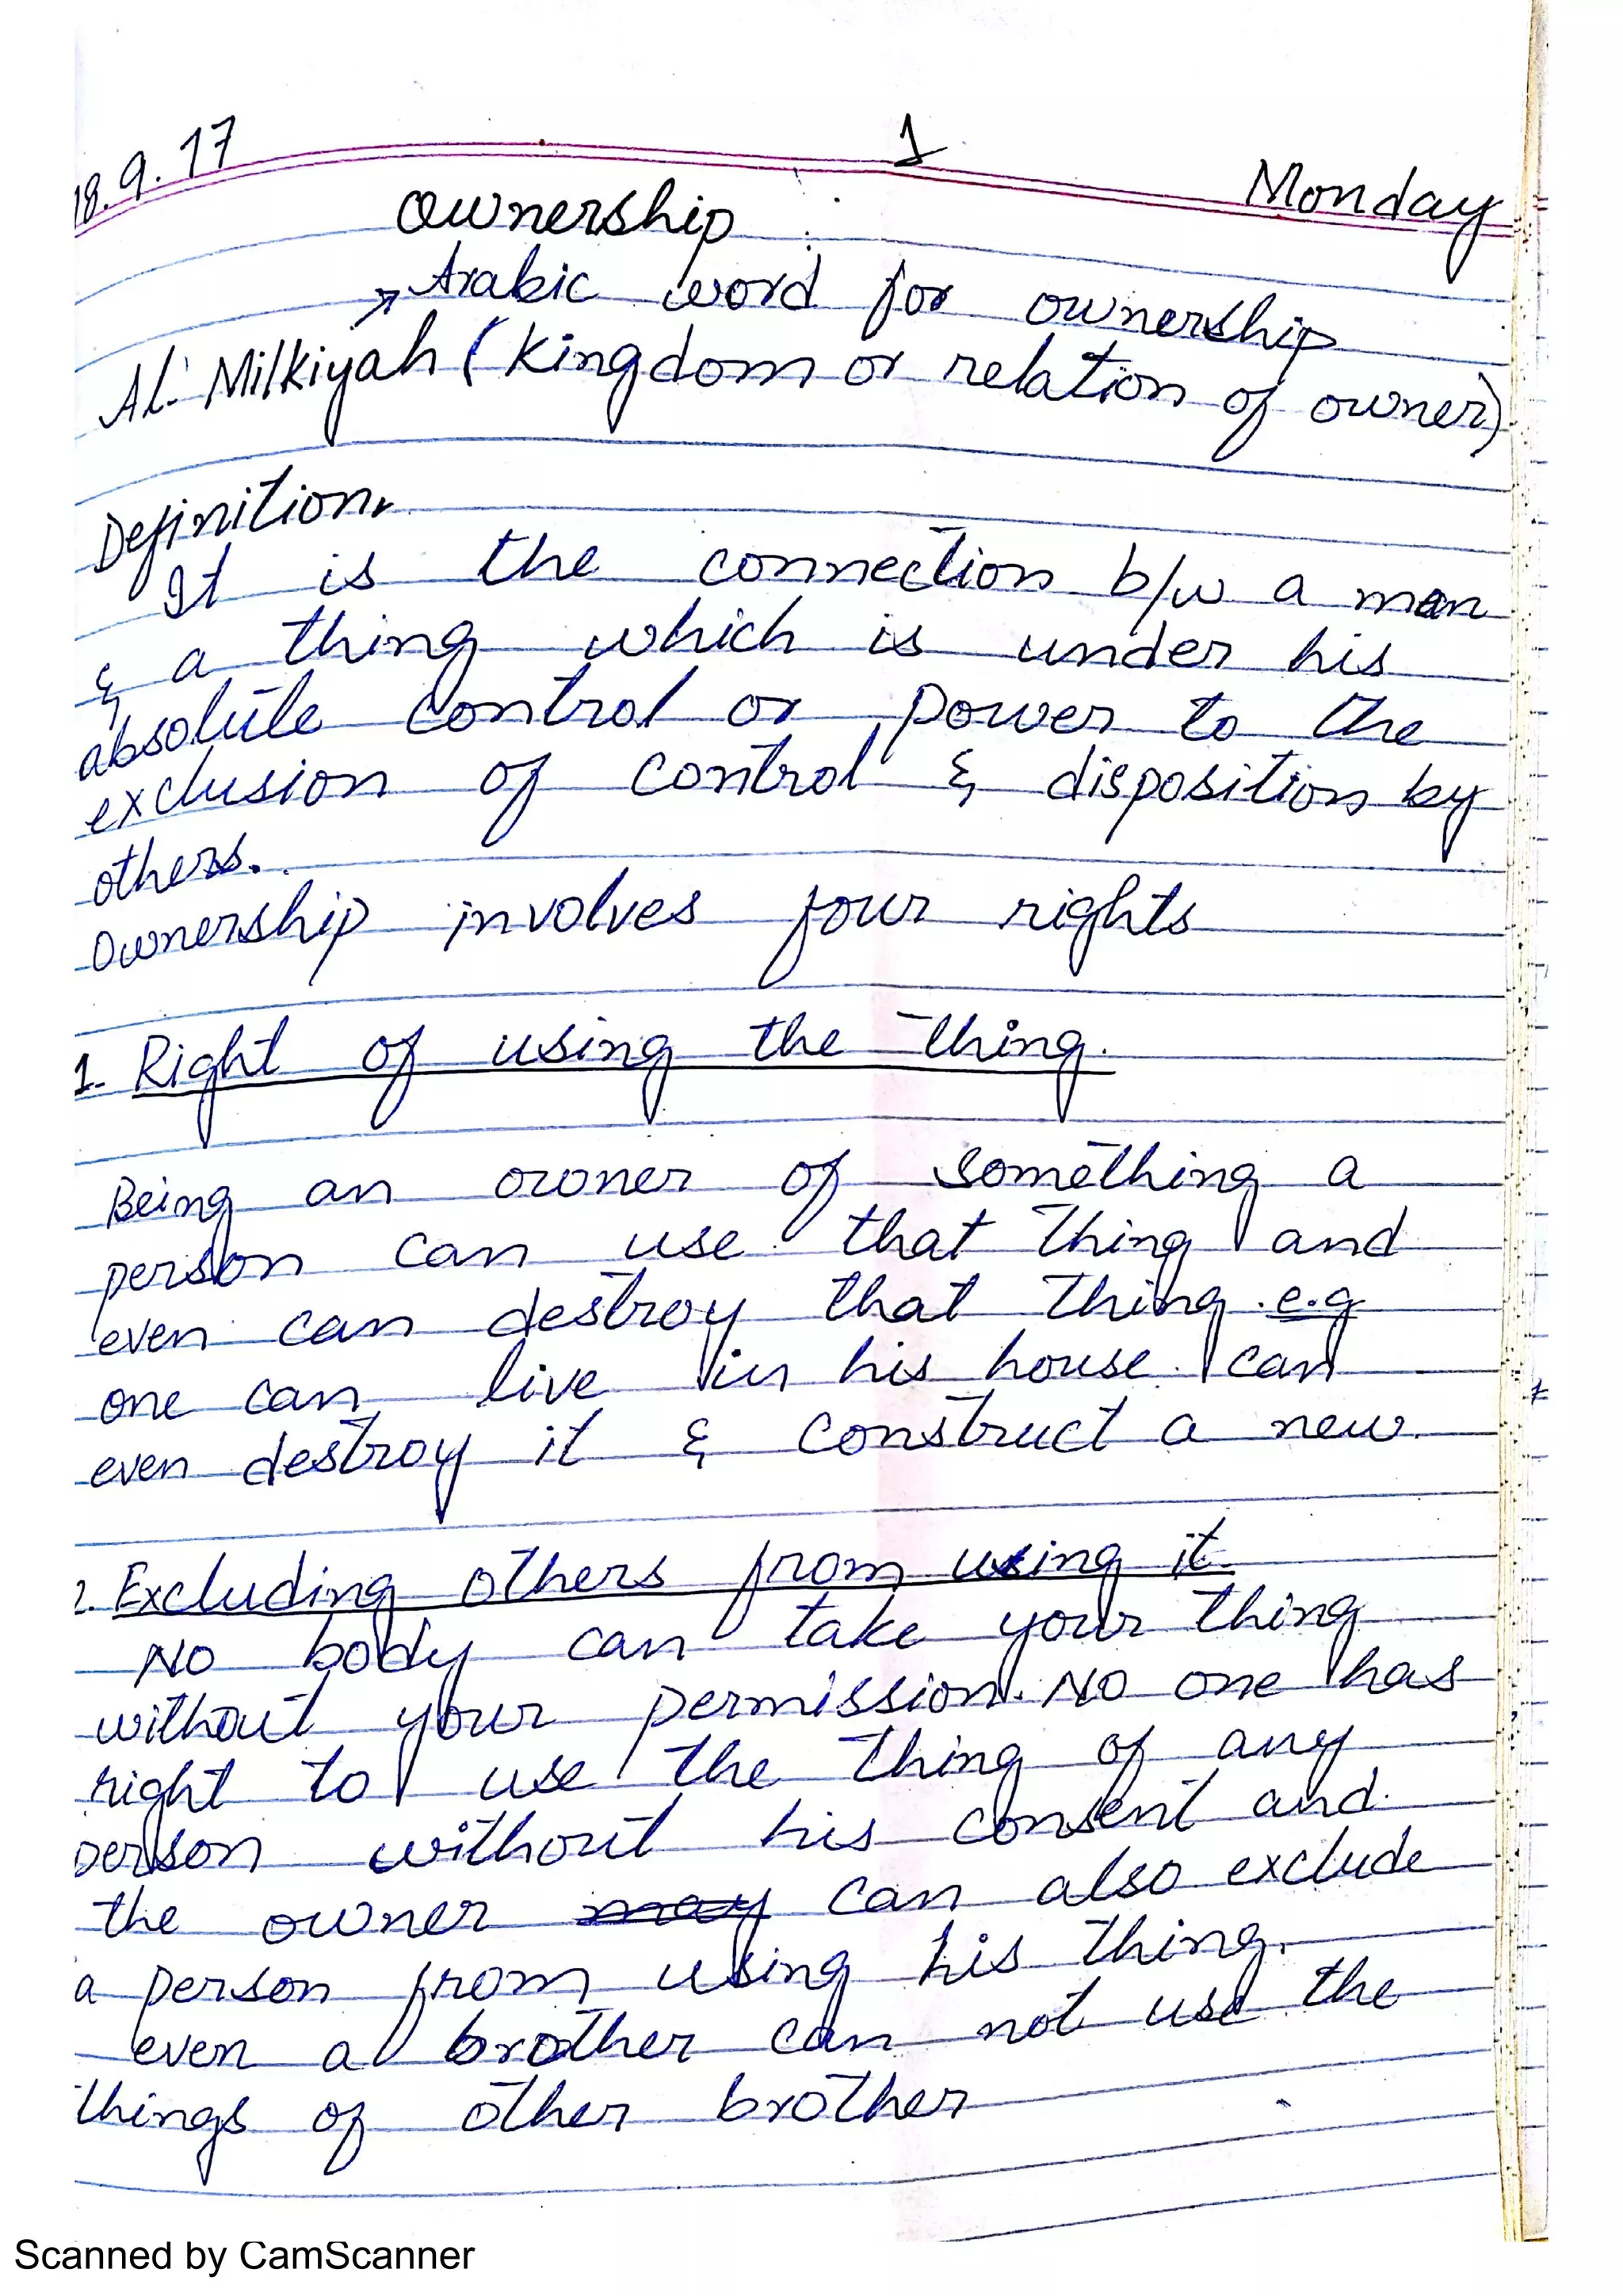 18.9.17
1
Monday
Ownership
→ Arabic word for ownership
Al-Milkiyah (Kingdom or relation of owner)
Definition
It is the connection b/w a man
& a thing which is under his
absolute control or power to the
exclusion of control & disposition by
others.
Ownership involves four rights
1. Right of using the thing.
Being an owner of something a
person can use that thing and
even can destroy that thing. e.g
one can live in his house. can
even destroy it & construct a new.
2. Excluding others from using it.
No body can take your thing
without your permission. No one has
right to use the thing of any
person without his consent and.
the owner may can also exclude
a person from using his thing.
even a brother can not use the
things of other brother
Scanned by CamScanner